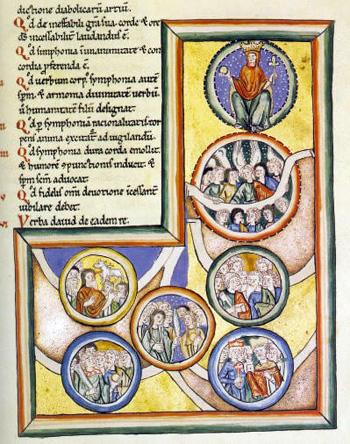 dictione diabolicarum artiū.
Qd de ineffabili grā sua corde & ore
ds incessabilit laudandus ē.
Qd simphonia i unanimitate & con
cordia pferenda ē.
Qd verbum corp symphonia autē
spm. & armonia divinitatē verbū
humanitatē filii designat.
Qd p symphoniā racionalitatis tor
pens anima excitat ad vigilandū.
Qd symphonia dura corda emollit.
& humorē 9punctionis inducit. &
spm scm advocat.
Qd fidelis omi devotione icessant
iubilare debet.
Verba david de eadem re.